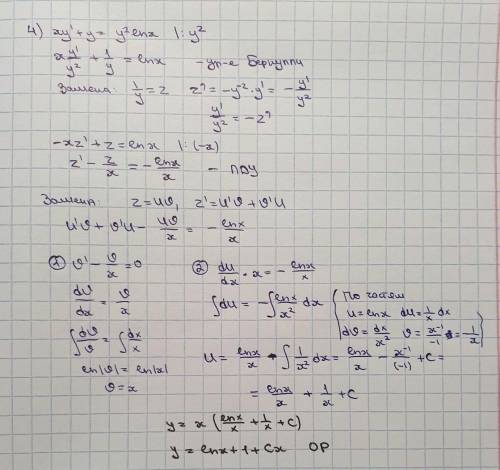 4) xy' + y = y² lnx |: y²
x y'/y² + 1/y = lnx - ур-е Бернулли
Замена: 1/y = z z' = -y⁻² · y' = - y'/y²
y'/y² = -z'
-xz' + z = lnx |: (-x)
z' - z/x = - lnx/x - ЛДУ
Замена: z = uv, z' = u'v + v'u
u'v + v'u - uv/x = - lnx/x
① v' - v/x = 0 ② du/dx · x = - lnx/x
dv/dx = v/x ∫du = -∫ lnx/x² dx { По частям
u = lnx du = 1/x dx
dv = dx/x² v = x⁻¹/-1 = -1/x }
∫ dv/v = ∫ dx/x
ln|v| = ln|x| u = lnx/x - ∫ 1/x² dx = lnx/x - x⁻¹/(-1) + C =
v = x
= lnx/x + 1/x + C
y = x (lnx/x + 1/x + C)
y = lnx + 1 + Cx ОР